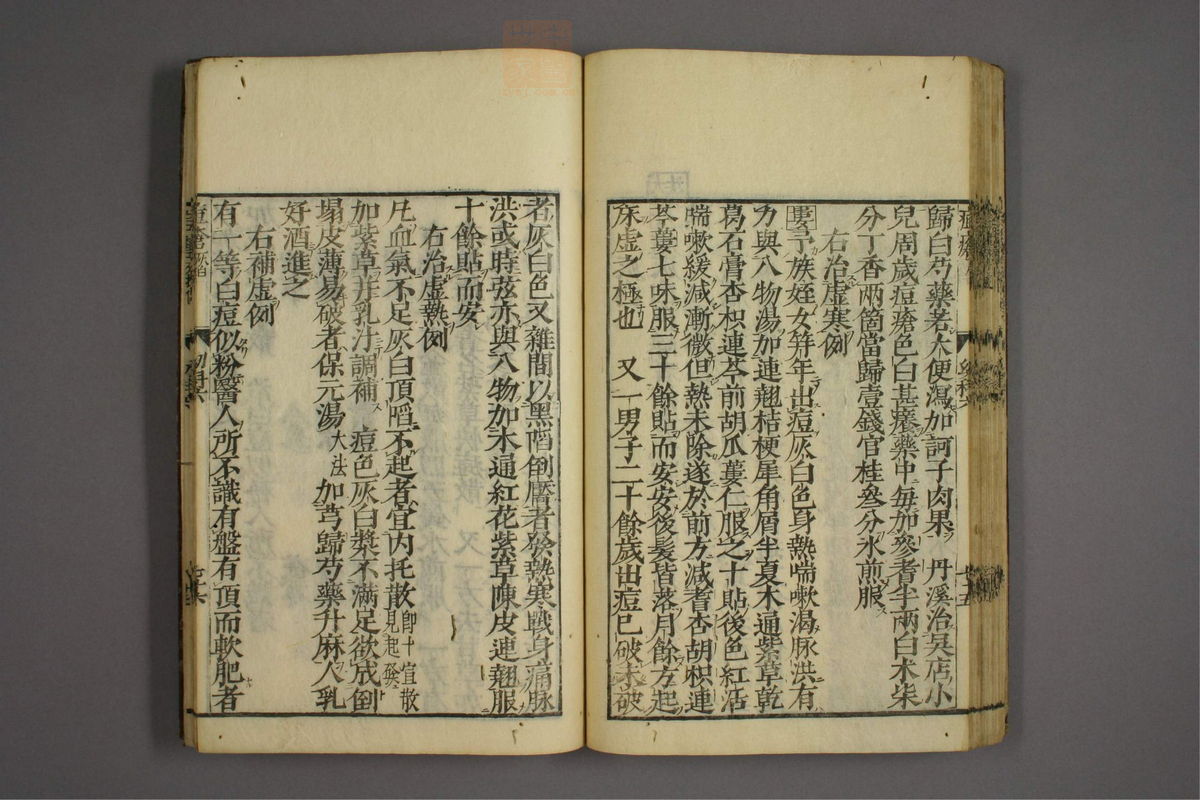 歸白芍藥若大便瀉加訶子肉果 丹溪治吳店小
兒周歲痘瘡色白甚癢藥中每加參耆半兩白朮柒
分丁香兩箇當歸壹錢官桂叄分水煎服
右治虛寒例
婁子族姪女笄年出痘灰白色身熱喘嗽渴脉洪有
力與八物湯加連翹桔梗犀角屑半夏木通紫草乾
葛石膏杏枳連芩前胡瓜蔞仁服之十貼後色紅活
喘嗽緩減漸微但熱未除遂於前方減耆杏胡枳連
芩蔞七味服三十餘貼而安安後髮皆落月餘方起
床虛之極也 又一男子二十餘歲出痘已破未破
者灰白色又雜間以黑陷倒靨者發熱寒戰身痛脉
洪或時弦亦與八物加木通紅花紫草陳皮連翹服
十餘貼而安
右治虛熱例
凡血氣不足灰白頂陷不起者宜內托散即十宣散見起發
加紫草并乳汁調補 痘色灰白漿不滿足欲成倒
塌皮薄易破者保元湯大法加芎歸芍藥升麻人乳
好酒進之
右補虛例
有一等白痘似粉醫人所不識有盤有頂而軟肥者